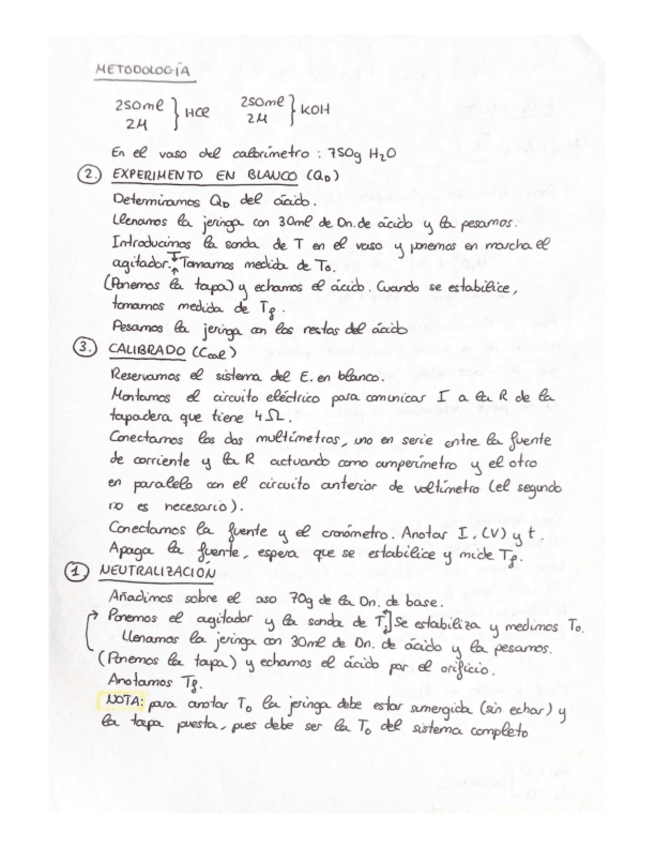 METODOLOGÍA
250ml } HCl 250ml } KOH
2M 2M
En el vaso del calorímetro : 750g H2O
2. EXPERIMENTO EN BLANCO (QD)
Determinamos QD del ácido.
Llenamos la jeringa con 30ml de Dn. de ácido y la pesamos.
Introducimos la sonda de T en el vaso y ponemos en marcha el
agitador. Tomamos medida de T0.
(Ponemos la tapa) y echamos el ácido. Cuando se estabilice,
tomamos medida de Tf.
Pesamos la jeringa con los restos del ácido
3. CALIBRADO (Ccal)
Reservamos el sistema del E. en blanco.
Montamos el circuito eléctrico para comunicar I a la R de la
tapadera que tiene 4 Ω.
Conectamos los dos multímetros, uno en serie entre la fuente
de corriente y la R actuando como amperímetro y el otro
en paralelo con el circuito anterior de voltímetro (el segundo
no es necesario).
Conectamos la fuente y el cronómetro. Anotar I, (V) y t.
Apaga la fuente, espera que se estabilice y mide Tf.
1. NEUTRALIZACIÓN
Añadimos sobre el aso 70g de la Dn. de base.
Ponemos el agitador y la sonda de T. Se estabiliza y medimos T0.
Llenamos la jeringa con 30ml de Dn. de ácido y la pesamos.
(Ponemos la tapa) y echamos el ácido por el orificio.
Anotamos Tf.
NOTA: para anotar T0 la jeringa debe estar sumergida (sin echar) y
la tapa puesta, pues debe ser la T0 del sistema completo